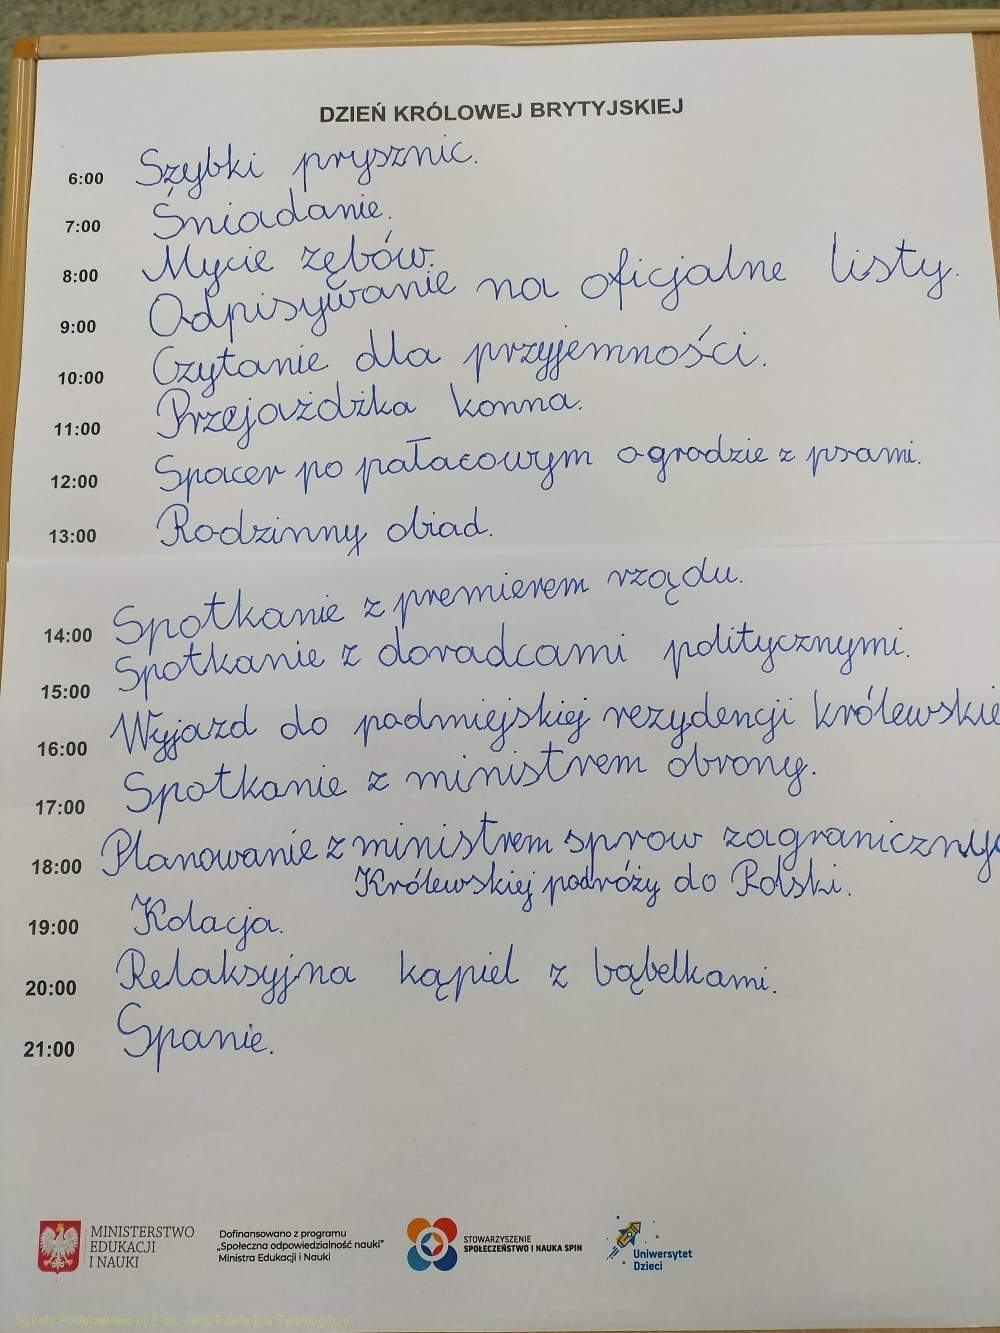 DZIEŃ KRÓLOWEJ BRYTYJSKIEJ
6:00 Szybki prysznic.
7:00 Śniadanie.
8:00 Mycie zębów.
9:00 Odpisywanie na oficjalne listy.
10:00 Czytanie dla przyjemności.
11:00 Przejażdżka konna.
12:00 Spacer po pałacowym ogrodzie z psami.
13:00 Rodzinny obiad.
14:00 Spotkanie z premierem rządu.
15:00 Spotkanie z doradcami politycznymi.
16:00 Wyjazd do podmiejskiej rezydencji królewskie
17:00 Spotkanie z ministrem obrony.
18:00 Planowanie z ministrem spraw zagranicznyc
Królewskiej podróży do Polski.
19:00 Kolacja.
20:00 Relaksyjna kąpiel z bąbelkami.
21:00 Spanie.
MINISTERSTWO
EDUKACJI
I NAUKI
Dofinansowano z programu
„Społeczna odpowiedzialność nauki"
Ministra Edukacji i Nauki
STOWARZYSZENIE
SPOŁECZEŃSTWO I NAUKA SPIN
Uniwersytet
Dzieci
Szkoła Podstawowa nr 2 im. Jana Pawła II w Twardogórze